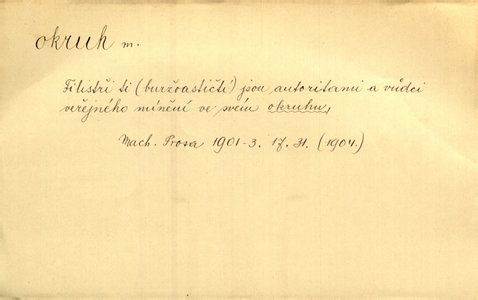 okruh m.
Filistři ti (buržoastičtí) jsou autoritami a vůdci
veřejného mínění ve svém okruhu,
Mach. Prosa 1901-3. 17. 31. (1904.)